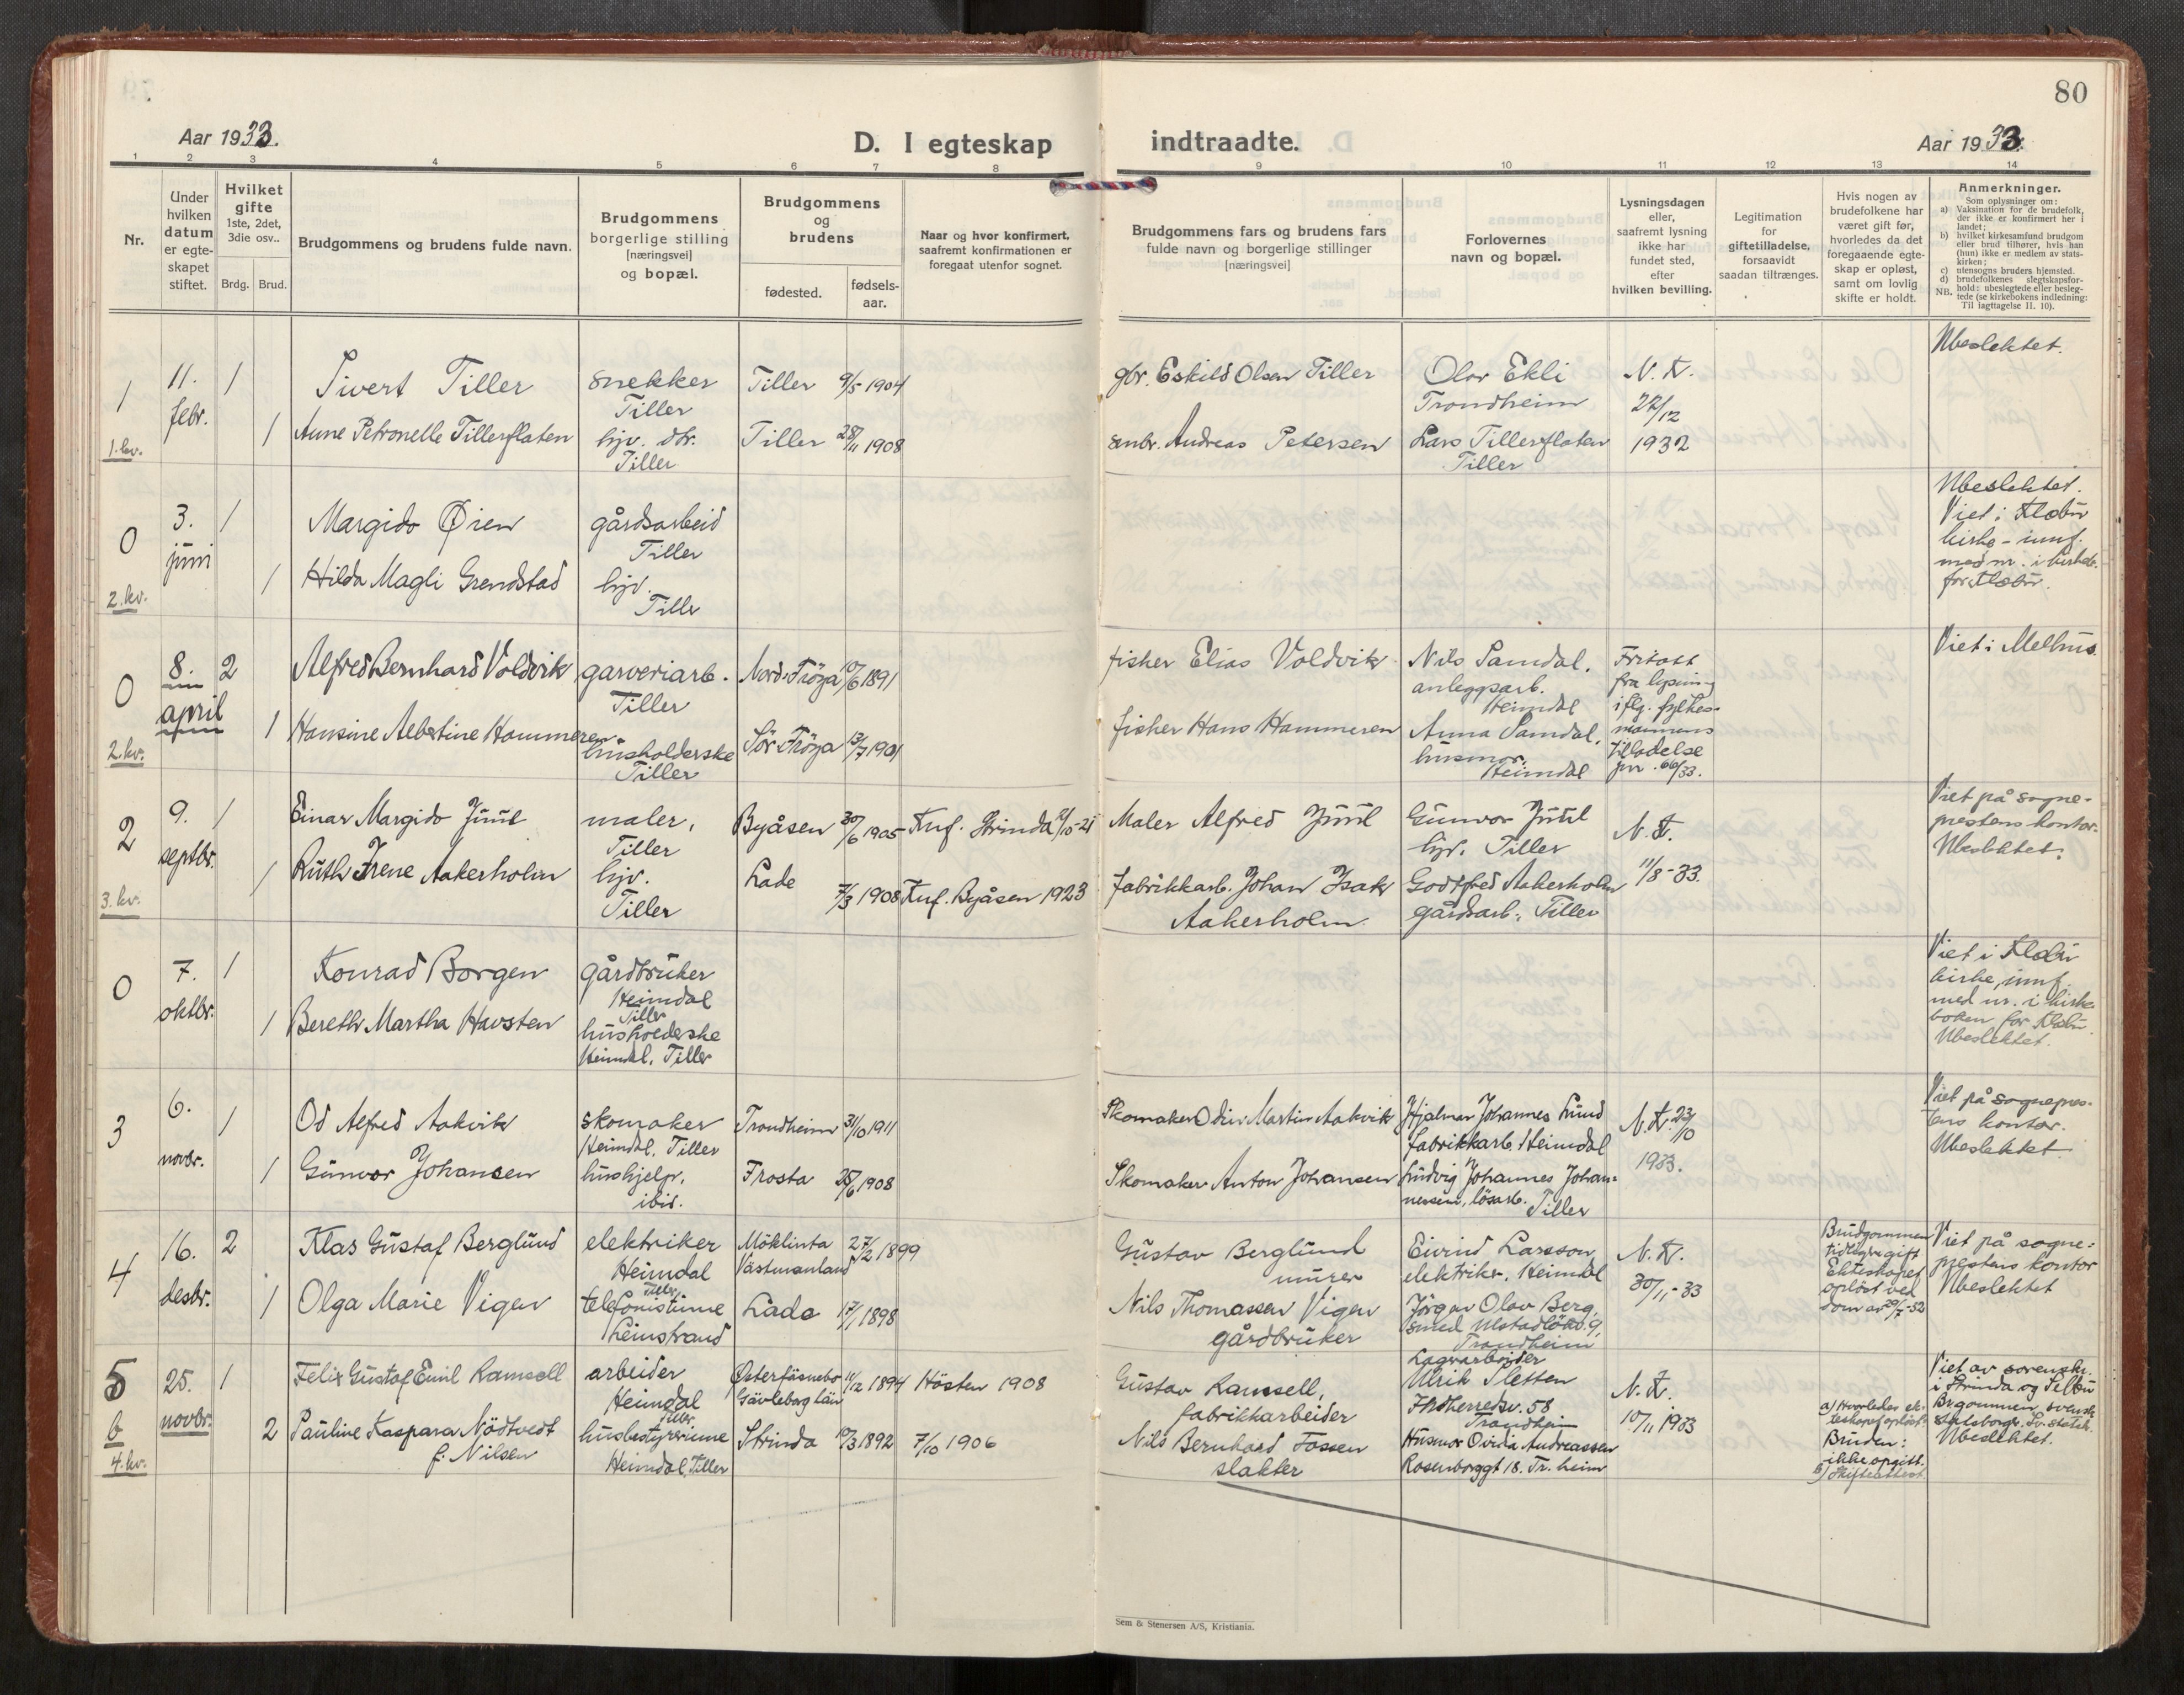 80
Aar 1933.
D. I egteskap indtraadte.
Aar 1933.
1 2 3 4 5 6 7 8 9 10 11 12 13 14
Nr.
Under hvilken datum er egte-skapet stiftet.
Hvilket gifte 1ste, 2det, 3die osv..
Brdg. Brud.
Brudgommens og brudens fulde navn.
Brudgommens borgerlige stilling [næringsvei] og bopæl.
Brudgommens og brudens
fødested. fødsels-aar.
Naar og hvor konfirmert, saafremt konfirmationen er foregaat utenfor sognet.
Brudgommens fars og brudens fars fulde navn og borgerlige stillinger [næringsvei]
Forlovernes navn og bopæl.
Lysningsdagen eller, saafremt lysning ikke har fundet sted, efter hvilken bevilling.
Legitimation for giftetilladelse, forsaavidt saadan tiltrænges.
Hvis nogen av brudefolkene har været gift før, hvorledes da det foregaaende egte-skap er opløst, samt om lovlig skifte er holdt.
Anmerkninger.
Som oplysninger om:
a) Vaksination for de brudefolk, der ikke er konfirmert her i landet;
b) hvilket kirkesamfund brudgom eller brud tilhører, hvis han (hun) ikke er medlem av stats-kirken;
c) utensogns bruders hjemsted.
d) brudefolkenes slegtskapsfor-hold: ubeslegtede eller besleg-tede (se kirkebokens indledning: Til iagttagelse II. 10).
NB.
1 11. febr. 1 Sivert Tiller snekker Tiller Tiller 9/5 1904 gbr. Eskild Olsen Tiller Olav Ekli Trondheim N. K. 27/12 1932 Ubeslektet.
1. kv. 1 Anne Petronelle Tillerflaten hjv. dtr. Tiller Tiller 28/11 1908 smbr. Andreas Petersen Lars Tillerflaten Tiller
0 3. juni 1 Margido Øien gårdsarbeid Tiller
2. kv. 1 Hilda Magli Grendstad hjv. Tiller
Ubeslektet. Viet i Klæbu kirke - innf. med nr. i kirkeb. for Klæbu.
0 8. april 2 Alfred Bernhard Voldvik garveriarb. Tiller Nord-Fröya 10/6 1891 fisher Elias Voldvik Nils Samdal. anleggsarb. Heimdal
2. kv. 1 Hansine Albertine Hammeren husholderske Tiller Sör-Fröya 13/7 1901 fisher Hans Hammeren Anna Samdal, husmor. Heimdal
Fritatt fra lysning iflg. fylkes-mannens tilladelse jnr. 66/33.
Viet i Melhus.
2 9. septbr. 1 Einar Margido Juul maler, Tiller Byåsen 30/6 1905 Knf. Strinda /10-21 Maler Alfred Juul Gunvor Juul hjv. Tiller N. K. 11/8-33.
3. kv. 1 Ruth Irene Aakerholm hjv. Tiller Lade 7/3 1908 Knf. Byåsen 1923 fabrikkarb. Johan Isak Aakerholm Godtfred Aakerholm gårdsarb., Tiller
Viet på sogne-prestens kontor. Ubeslektet.
0 7. oktbr. 1 Konrad Borgen gårdbruker Heimdal Tiller
1 Bereth Martha Havsten husholderske Heimdal, Tiller
Viet i Klæbu kirke, innf. med nr. i kirke boken for Klæbu. Ubeslektet.
3 6. novbr. 1 Od Alfred Aakvik skomaker Heimdal, Tiller Trondheim 31/10 1911 Skomaker Odin Martin Aakvik Hjalmar Johannes Lund fabrikkarb. Heimdal N. K. 23/10 1933.
1 Gunvor Johansen hushjelp, ibid. Frosta 25/6 1908 Skomaker Anton Johansen Ludvig Johannes Johan-nesen, lösarb. Tiller
Viet på sognepres-tens kontor. Ubeslektet
4 16. desbr. 2 Klas Gustaf Berglund elektriker Heimdal Tiller Möklinta Västmanland 27/12 1899 Gustav Berglund murer Eivind Larsson, elektriker, Heimdal N. K. 30/11-33
1 Olga Marie Vigen telefonistinne Leinstrand Lade 17/1 1898 Nils Thomassen Vigen gårdbruker Jörgen Olav Berg, smed Ulstadlökv. 9, Trondheim
Brudgommen tidligere gift Ekteskapet oplöst ved dom av 29/7-32
Viet på sogne-prestens kontor Ubeslektet
5 25. novbr. 1 Felix Gustaf Emil Ramsell arbeider Heimdal Tiller. Österfärnebo Gävleborg län 11/12 1894 Hösten 1908 Gustav Ramsell, fabrikkarbeider Lagerarbeider Ulrik Sletten Indherredsv. 58 Trondheim N. K. 10/11 1933
b 4. kv. 2 Pauline Kaspara Nödtvedt f. Nilsen husbestyrerinne Heimdal, Tiller Strinda 19/3 1892 7/10 1906 Nils Bernhard Fossen slakter Husmor Ovidia Andreassen Rosenborggt 18. Tr.heim
a) Hvorledes ek-teskapet oplöst: Bruden: ikke opgitt. b) Skifteattest
Viet av sorenskr. i Strinda og Selbu Brgommen svensk statsborger. Sv. statsk. Ubeslektet.
Sem & Stenersen A/S, Kristiania.